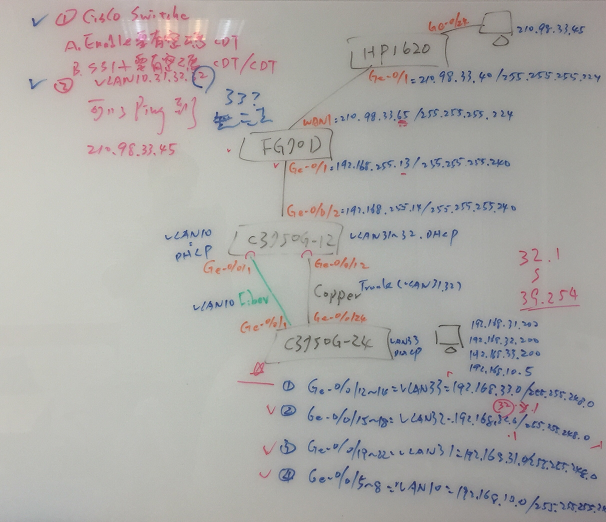 ① Cisco Switch
A. Enable 要有密碼 CDT
B. SSH 要有密碼 CDT/CDT
② VLAN10.31.32.
可以 Ping 到
210.98.33.45
33?
Ge-0/
210.98.33.45
HP1620
Ge-0/1=210.98.33.40/255.255.255.224
WAN1=210.98.33.65/255.255.255.224
FG90D
Ge-0/1=192.168.255.13/255.255.255.240
Ge-0/0/2=192.168.255.14/255.255.255.240
VLAN10
DHCP
C3750G-12
VLAN31~32. DHCP
Ge-0/0/1
Ge-0/0/12
VLAN10 Fiber
Copper
Trunk (VLAN31,32)
32.1
39.254
Ge-0/0/1
Ge-0/0/24
C3750G-24
VLAN33
DHCP
192.168.31.202
192.168.32.200
192.168.33.200
192.168.10.5
① Ge-0/0/12~14=VLAN33=192.168.33.0/255.255.248.0
② Ge-0/0/15~18=VLAN32=192.168.32.0/255.255.248.0
③ Ge-0/0/19~22=VLAN31=192.168.31.0/255.255.248.0
④ Ge-0/0/5~8=VLAN10=192.168.10.0/255.255.255.